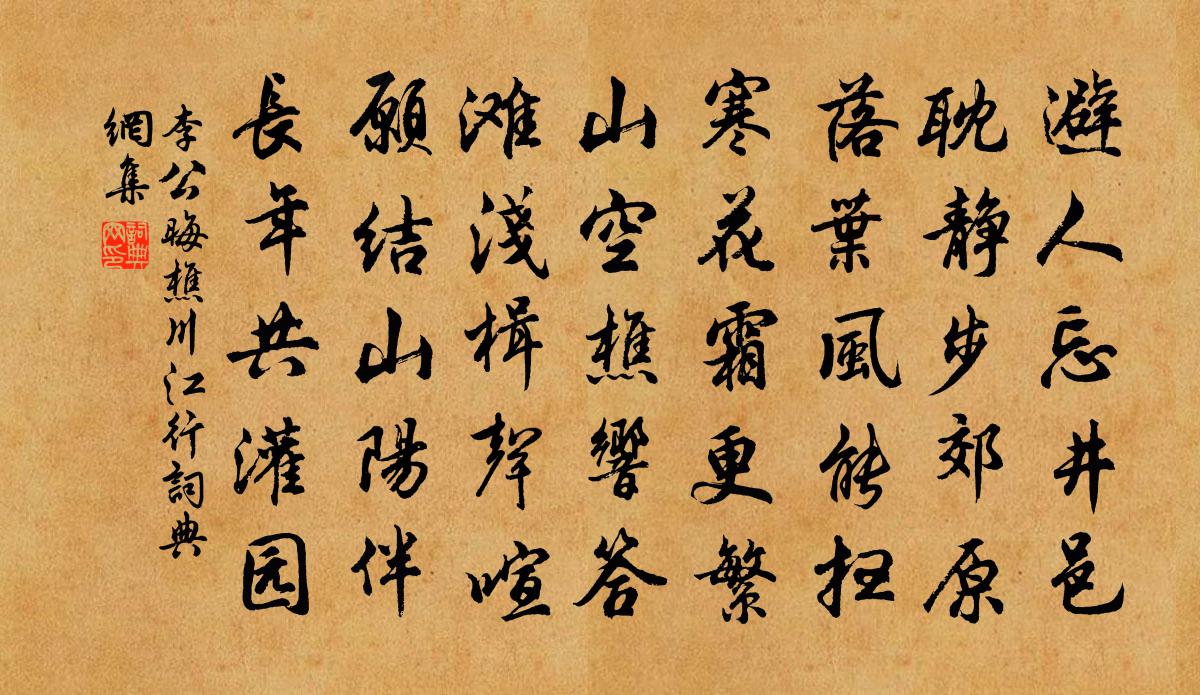 避人忘井邑
耽静步郊原
落葉風能扫
寒花霜更繁
山空樵響答
滩淺楫聲喧
願结山陽伴
長年共灌园
李公晦樵川江行詞典
網集
詞典
网印